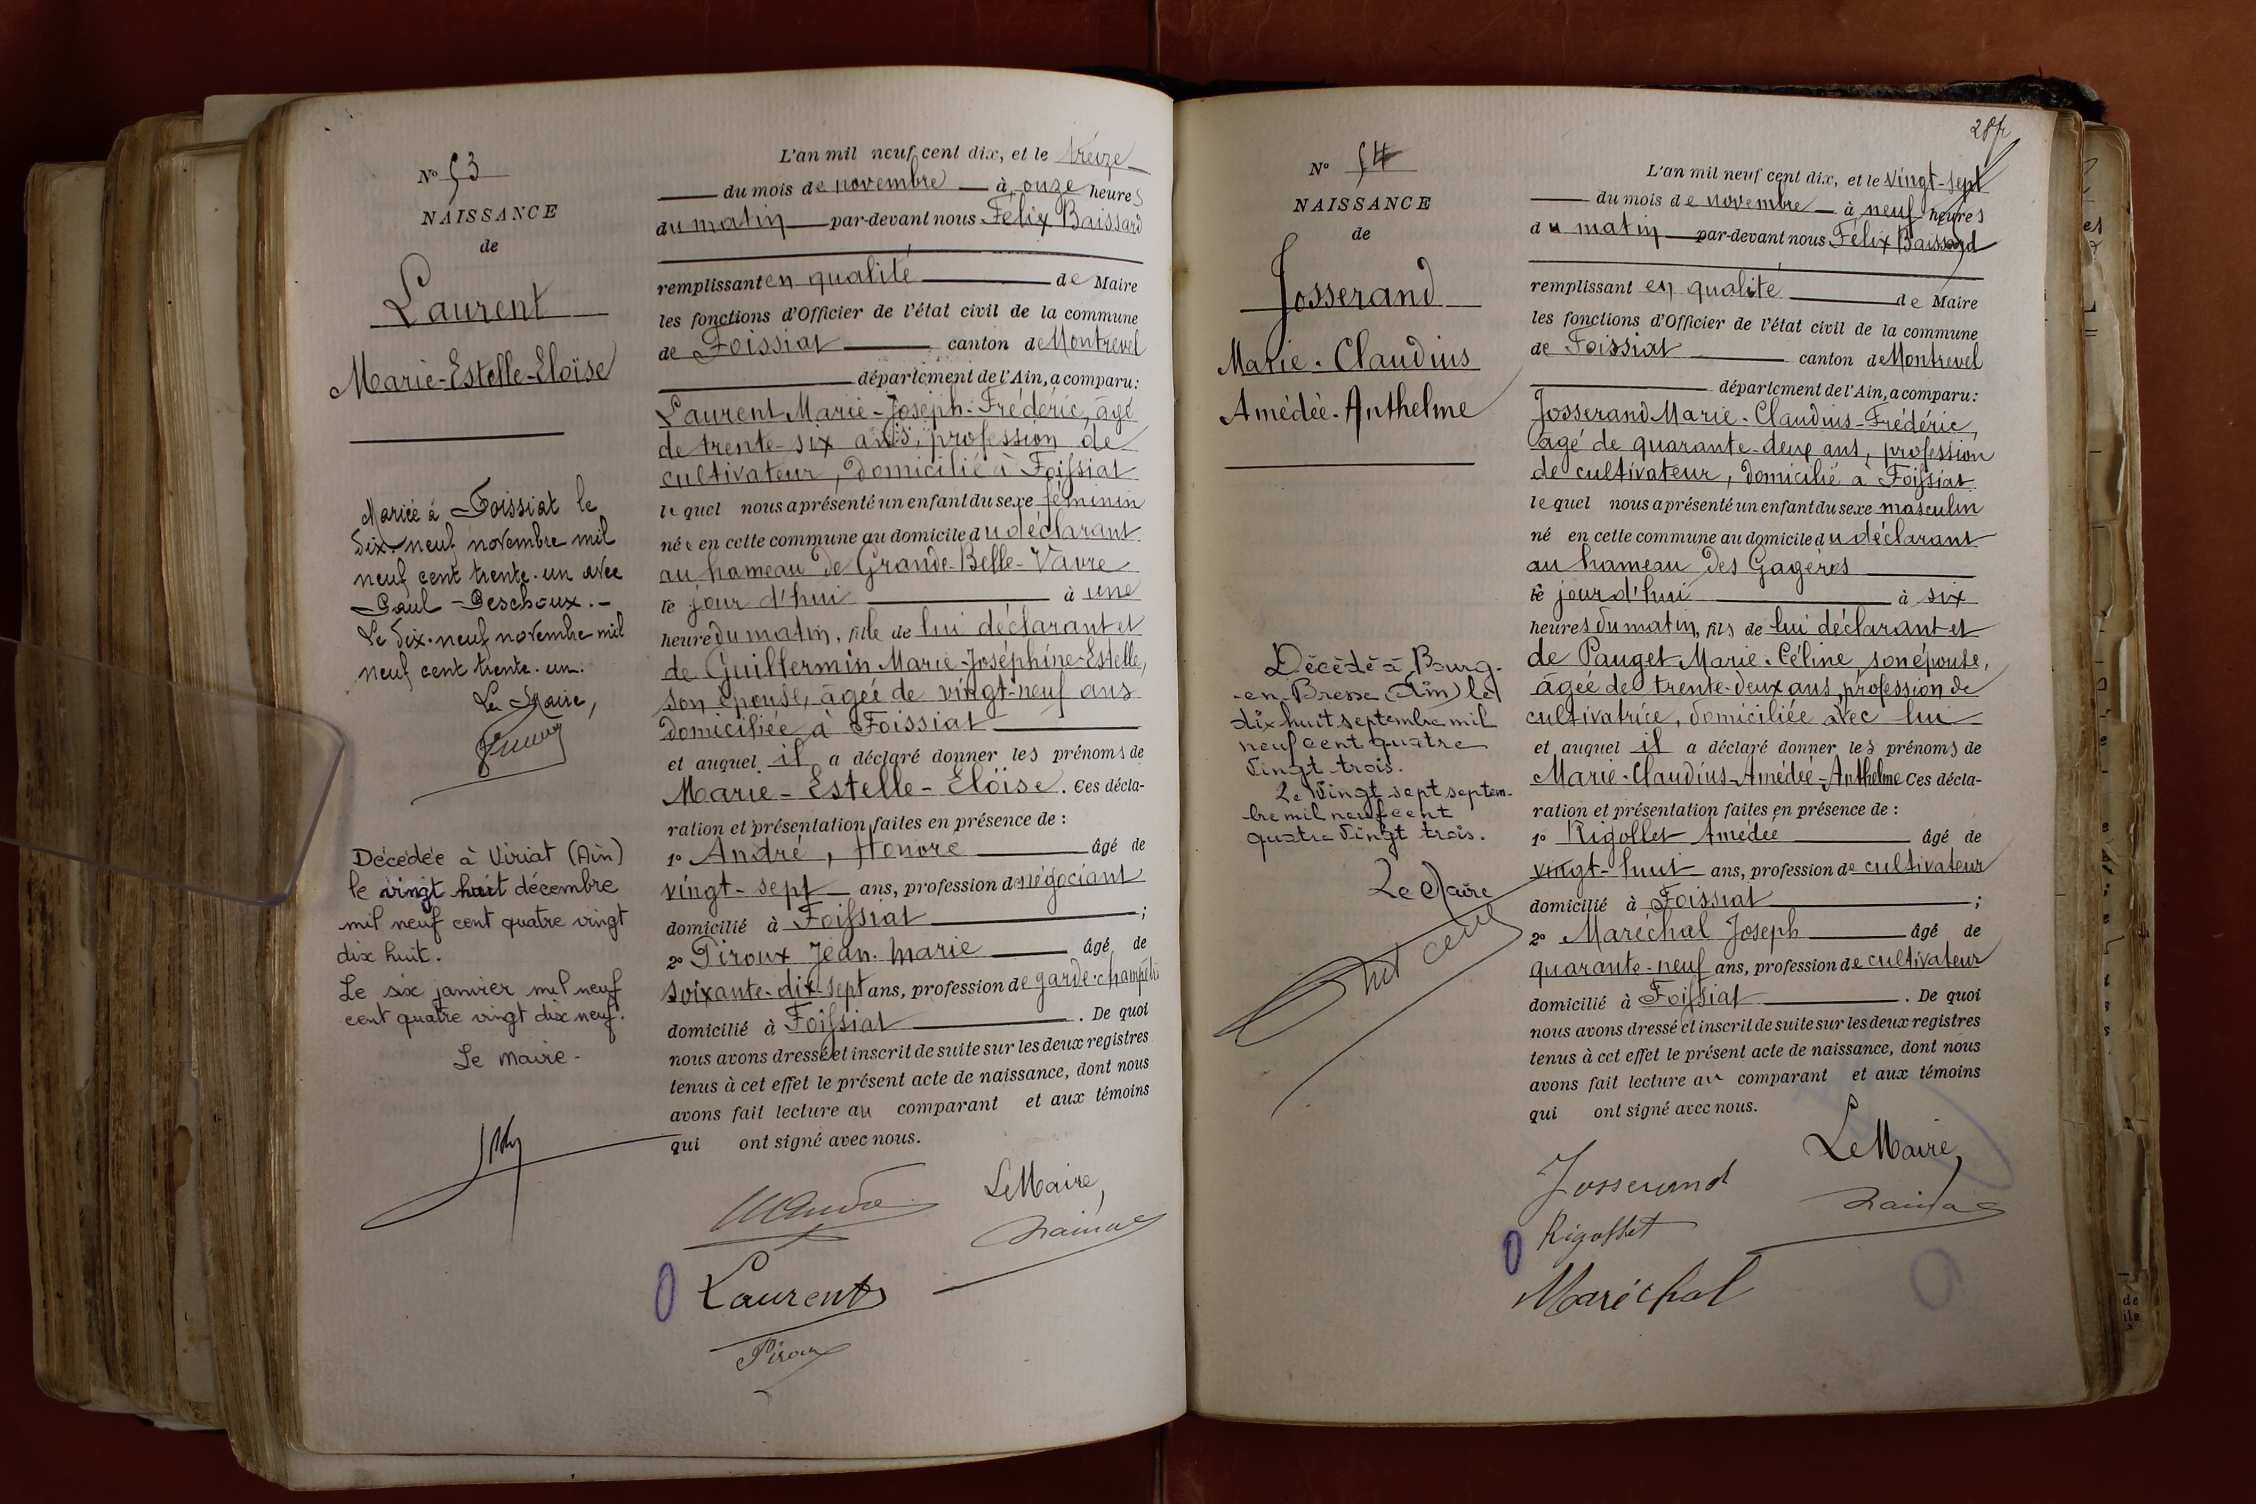 N° 53
NAISSANCE
de
Laurent
Marie-Estelle-Eloïse
Mariée à Foissiat le
dix-neuf novembre mil
neuf cent trente-un avec
Paul Peschoux.-
Le dix-neuf novembre mil
neuf cent trente-un.
Le Maire,
Décédée à Viriat (Ain)
le vingt huit décembre
mil neuf cent quatre vingt
dix huit.
Le six janvier mil neuf
cent quatre vingt dix neuf.
Le maire -
L'an mil neuf cent dix, et le treize
du mois de novembre à onze heures
du matin par-devant nous Félix Baissard
remplissant en qualité de Maire
les fonctions d'Officier de l'état civil de la commune
de Foissiat canton de Montrevel
département de l'Ain, a comparu :
Laurent Marie-Joseph-Frédéric, âgé
de trente-six ans, profession de
cultivateur, domicilié à Foissiat
le quel nous a présenté un enfant du sexe féminin
née en cette commune au domicile du déclarant
au hameau de Grande-Belle-Vavre
le jour d'hui à une
heure du matin, fille de lui déclarant et
de Guillermin Marie-Joséphine-Estelle,
son épouse, âgée de vingt-neuf ans
domiciliée à Foissiat
et auquel il a déclaré donner les prénoms de
Marie-Estelle-Eloïse. Ces décla-
ration et présentation faites en présence de :
1° André, Honoré âgé de
vingt-sept ans, profession de négociant
domicilié à Foissiat ;
2° Piroux Jean-Marie âgé de
soixante-dix-sept ans, profession de garde-champêtre
domicilié à Foissiat . De quoi
nous avons dressé et inscrit de suite sur les deux registres
tenus à cet effet le présent acte de naissance, dont nous
avons fait lecture au comparant et aux témoins
qui ont signé avec nous.
Le Maire,
Laurent
Piroux
28
N° 54
NAISSANCE
de
Josserand
Marie-Claudius
Amédée-Anthelme
Décédé à Bourg-
-en-Bresse (Ain) le
dix huit septembre mil
neuf cent quatre
vingt trois.
Le vingt sept septem-
bre mil neuf cent
quatre vingt trois.
Le Maire
L'an mil neuf cent dix, et le vingt-sept
du mois de novembre à neuf heures
du matin par-devant nous Félix Baissard
remplissant en qualité de Maire
les fonctions d'Officier de l'état civil de la commune
de Foissiat canton de Montrevel
département de l'Ain, a comparu :
Josserand Marie-Claudius-Frédéric,
âgé de quarante-deux ans, profession
de cultivateur, domicilié à Foissiat
le quel nous a présenté un enfant du sexe masculin
né en cette commune au domicile du déclarant
au hameau des Gagères
le jour d'hui à six
heures du matin, fils de lui déclarant et
de Pauget Marie-Céline, son épouse,
âgée de trente-deux ans, profession de
cultivatrice, domiciliée avec lui
et auquel il a déclaré donner les prénoms de
Marie-Claudius-Amédée-Anthelme Ces décla-
ration et présentation faites en présence de :
1° Rigollet Amédée âgé de
vingt-huit ans, profession de cultivateur
domicilié à Foissiat ;
2° Maréchal Joseph âgé de
quarante-neuf ans, profession de cultivateur
domicilié à Foissiat . De quoi
nous avons dressé et inscrit de suite sur les deux registres
tenus à cet effet le présent acte de naissance, dont nous
avons fait lecture au comparant et aux témoins
qui ont signé avec nous.
Le Maire,
Josserand
Rigollet
Maréchal